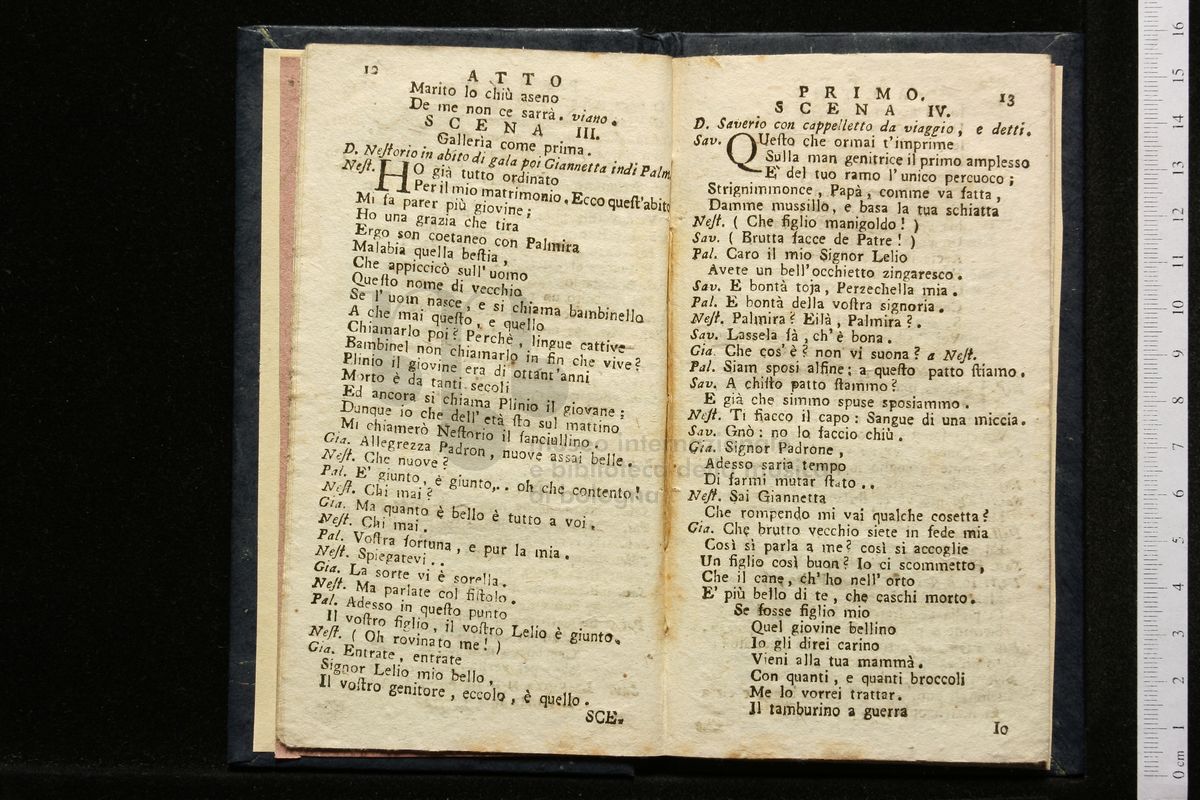 12
ATTO
Marito lo chiù aseno
De me non ce sarrà. viano.
SCENA III.
Galleria come prima.
D. Neſtorio in abito di gala poi Giannetta indi Palm.
Neſt. HO già tutto ordinato
Per il mio matrimonio. Ecco queſt'abito
Mi fa parer più giovine;
Ho una grazia che tira
Ergo son coetaneo con Palmira
Malabia quella beſtia,
Che appiccicò sull'uomo
Queſto nome di vecchio
Se l'uom nasce, e si chiama bambinello
A che mai queſto, e quello
Chiamarlo poi? Perchè, lingue cattive
Bambinel non chiamarlo in fin che vive?
Plinio il giovine era di ottant'anni
Morto è da tanti secoli
Ed ancora si chiama Plinio il giovane;
Dunque io che dell'età ſto sul mattino
Mi chiamerò Neſtorio il fanciullino.
Gia. Allegrezza Padron, nuove assai belle.
Neſt. Che nuove?
Pal. E' giunto, è giunto,.. oh che contento!
Neſt. Chi mai?
Gia. Ma quanto è bello è tutto a voi.
Neſt. Chi mai.
Pal. Voſtra fortuna, e pur la mia.
Neſt. Spiegatevi..
Gia. La sorte vi è sorella.
Neſt. Ma parlate col fiſtolo.
Pal. Adesso in queſto punto
Il voſtro figlio, il voſtro Lelio è giunto.
Neſt. (Oh rovinato me!)
Gia. Entrate, entrate
Signor Lelio mio bello,
Il voſtro genitore, eccolo, è quello.
SCE-
PRIMO.
13
SCENA IV.
D. Saverio con cappelletto da viaggio, e detti.
Sav. QUeſto che ormai t'imprime
Sulla man genitrice il primo amplesso
E' del tuo ramo l'unico percuoco;
Strignimmonce, Papà, comme va fatta,
Damme mussillo, e basa la tua schiatta
Neſt. (Che figlio manigoldo!)
Sav. (Brutta facce de Patre!)
Pal. Caro il mio Signor Lelio
Avete un bell'occhietto zingaresco.
Sav. E bontà toja, Perzechella mia.
Pal. E bontà della voſtra signoria.
Neſt. Palmira? Eilà, Palmira?.
Sav. Lassela fà, ch'è bona.
Gia. Che cos'è? non vi suona? a Neſt.
Pal. Siam sposi alfine; a queſto patto ſtiamo.
Sav. A chiſto patto ſtammo?
E già che simmo spuse sposiammo.
Neſt. Ti fiacco il capo: Sangue di una miccia.
Sav. Gnò: no lo faccio chiù.
Gia. Signor Padrone,
Adesso saria tempo
Di farmi mutar ſtato..
Neſt. Sai Giannetta
Che rompendo mi vai qualche cosetta?
Gia. Che brutto vecchio siete in fede mia
Così si parla a me? così si accoglie
Un figlio così buon? Io ci scommetto,
Che il cane, ch'ho nell'orto
E' più bello di te, che caschi morto.
Se fosse figlio mio
Quel giovine bellino
Io gli direi carino
Vieni alla tua mammà.
Con quanti, e quanti broccoli
Me lo vorrei trattar.
Il tamburino a guerra
Io
museo internazionale
e biblioteca della musica
di bologna
0 cm 1 2 3 4 5 6 7 8 9 10 11 12 13 14 15 16